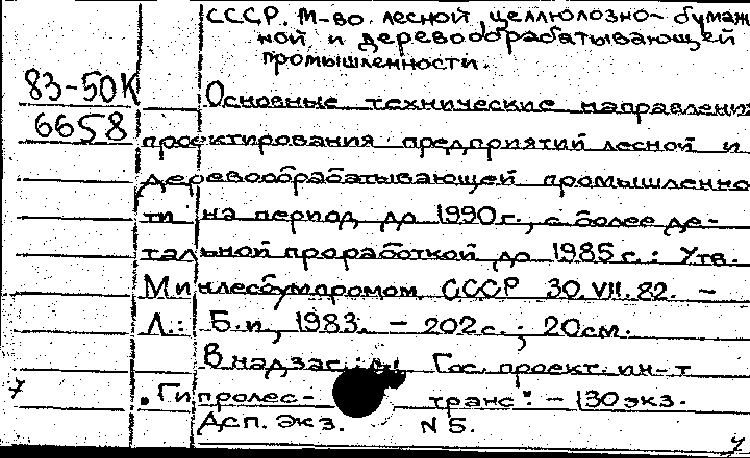 СССР. М-во лесной, целлюлозно-бумаж
ной и деревообрабатывающей
промышленности.
83-50К
Основные технические направления
6658
проектирования предприятий лесной и
деревообрабатывающей промышленнос
ти на период до 1990 г., с более де-
тальной проработкой до 1985 г.: Утв.
Минлесбумпромом СССР 30.VII.82. -
Л.: Б.и, 1983. - 202 с.; 20 см.
В надзаг.: Гос. проект. ин-т
"Гипролес- транс". - 130 экз.
Асп. экз. N 5.